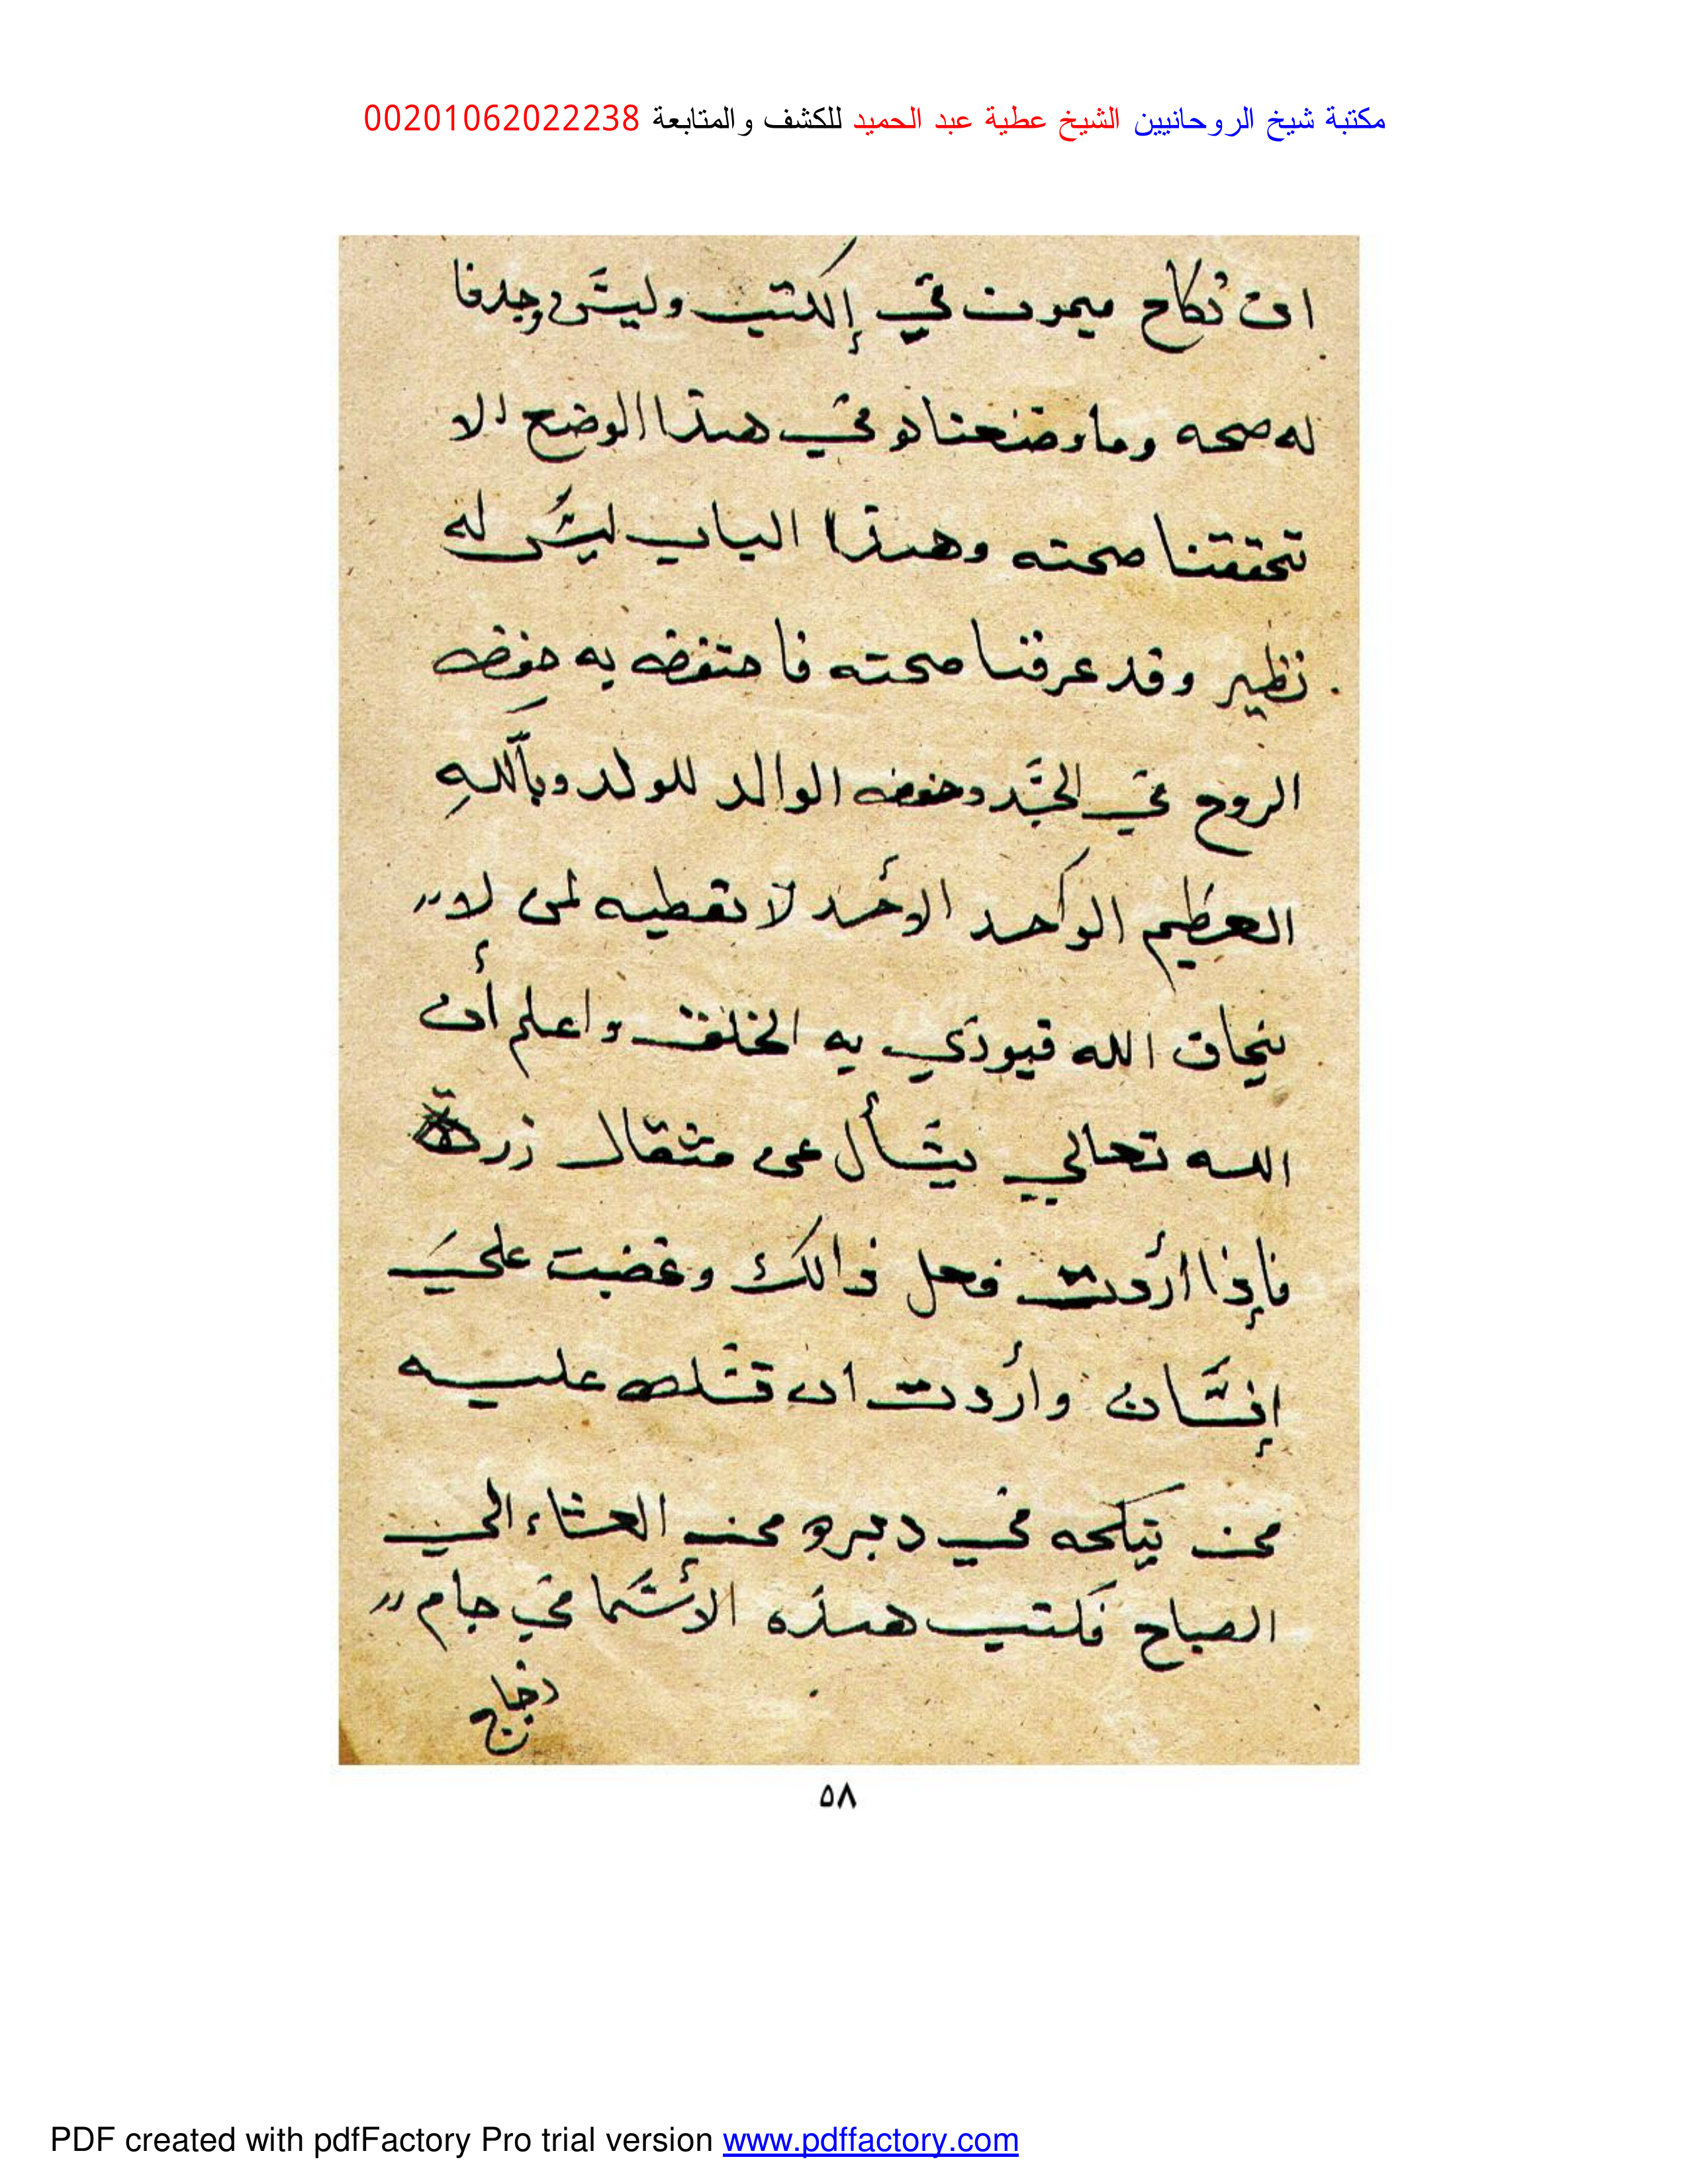 مكتبة شيخ الروحانيين الشيخ عطية عبد الحميد للكشف والمتابعة 00201062022238
ان نكاح ميمون في إلكتب وليس وجدنا
له صحه وما وضعناه في هذا الوضع الا
تحققنا صحته وهذا الباب ليس له
نظير وقد عرفنا صحته فاحتفض به حفض
الروح في الجسد وحفض الوالد للولد وبالله
العظيم الواحد الأحد لا تعطيه لمن لا
يخاف الله فيوذي به الخلق واعلم أن
الله تعالي يسأل عن مثقال زرة
فإذا أردت فعل ذالك وغضبت علي
إنسان وأردت ان تسلط عليه
من ينكحه في دبره من العشاء الي
الصباح فكتب هذه الأسما في جام
زجاج
٥٨
PDF created with pdfFactory Pro trial version www.pdffactory.com